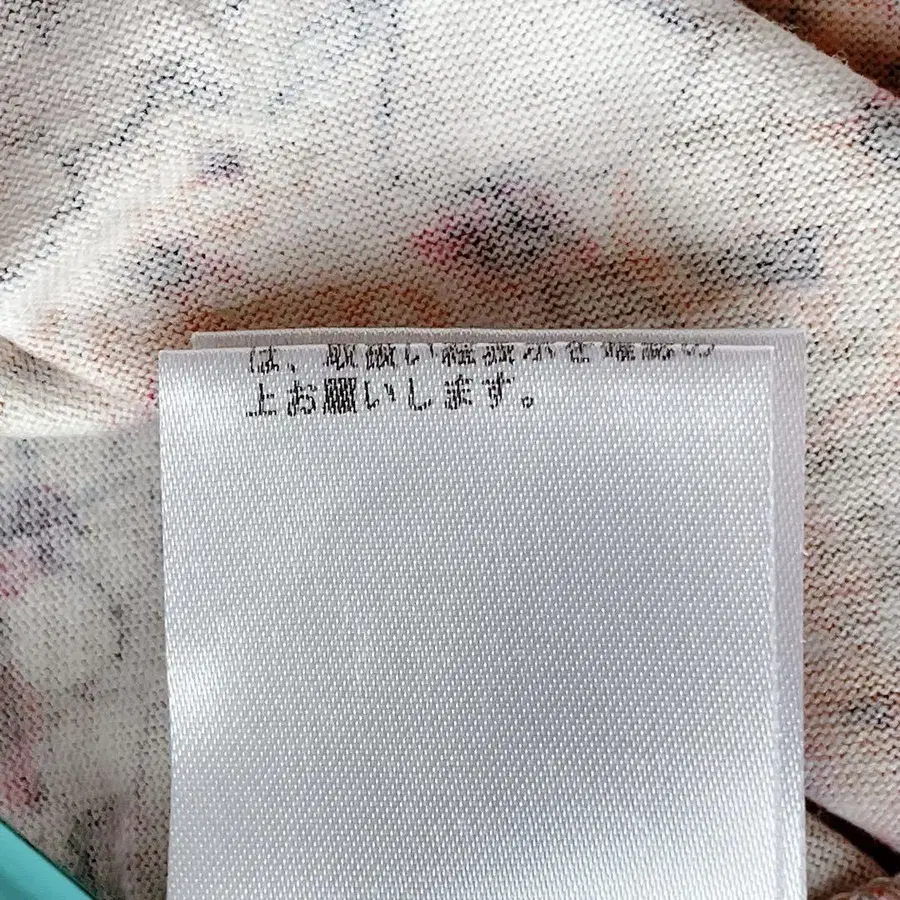 は、取扱い絵表示を確認の
上お願いします。